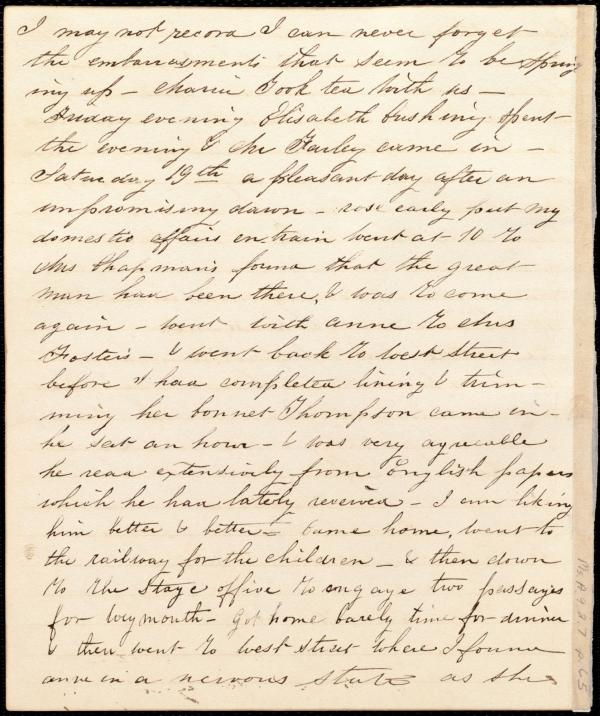 I may not record I can never forget
the embarrasments that seem to be spring
ing up - Charlie Took tea with us -
Friday evening Elisabeth Cushing spent
the evening & Mr Farley came in -
Saturday 19th a pleasant day after an
unpromising dawn - rose early put my
domestic affairs en train went at 10 to
Mrs Chapman's found that the great
man had been there, & was to come
again - went with Anne to Mrs
Foster's - & went back to West Street
before I had completed lining & trim-
ming her bonnet Thompson came in -
he sat an hour - & was very agreeable
he read extensively from English papers
which he had lately received - I am liking
him better & better - Came home, went to
the railway for the children - & then down
to the Stage office to engage two passages
for Weymouth - Got home barely time for dinner
& then went to West Street where I found
Anne in a nervous state as she
Ms. A.9.2.7 p. 65